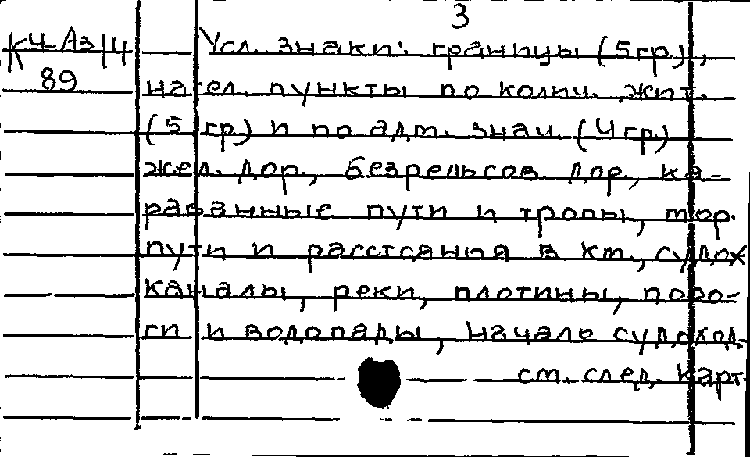 3
К4-Аз|4 Усл. знаки: границы (5гр),
89 насел. пункты по колич. жит.
(5 гр) и по адм. знач. (4 гр)
жел. дор., безрельсов дор., ка-
раванные пути и тропы, мор.
пути и расстояния в км., судох
каналы, реки, плотины, поро-
ги и водопады, начало судоход.
см. след. карт.